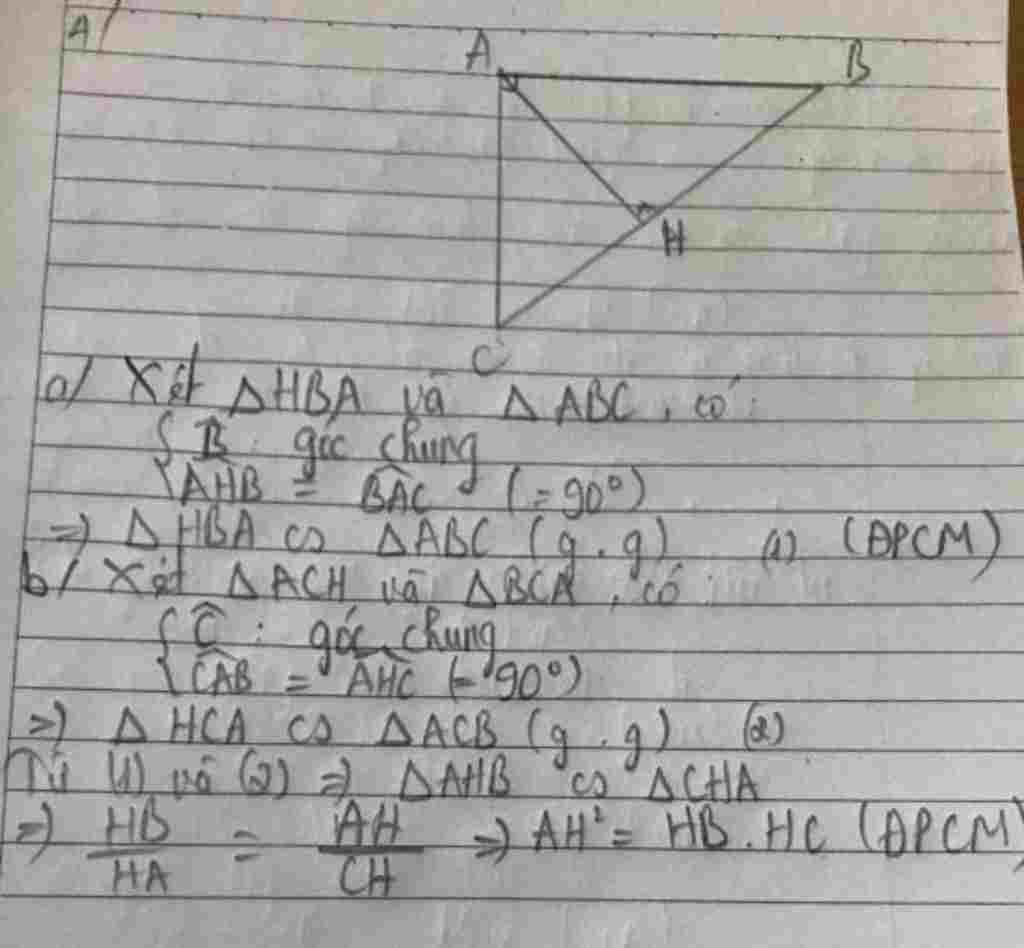 4/
A
B
H
C
a/ Xét ΔHBA và ΔABC, có:
{ B̂: góc chung
{ AHB = BAC (= 90°)
=> ΔHBA ∽ ΔABC (g.g) (1) (ĐPCM)
b/ Xét ΔACH và ΔBCA, có:
{ Ĉ: góc chung
{ CAB = AHC (= 90°)
=> ΔHCA ∽ ΔACB (g.g) (2)
Từ (1) và (2) => ΔAHB ∽ ΔCHA
=> HB/HA = AH/CH => AH² = HB.HC (ĐPCM)